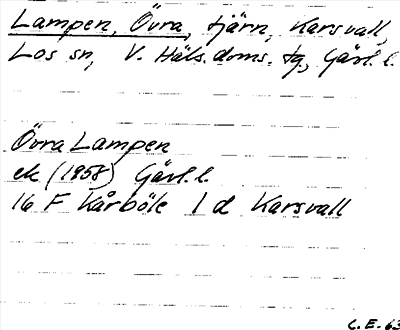 Lampen, Övra, tjärn, Karsvall,
Los sn, V. Häls. doms. tg, Gävl. l.
Övra Lampen
ek (1958) Gävl. l.
16 F Kårböle 1 d Karsvall
C. E. 63